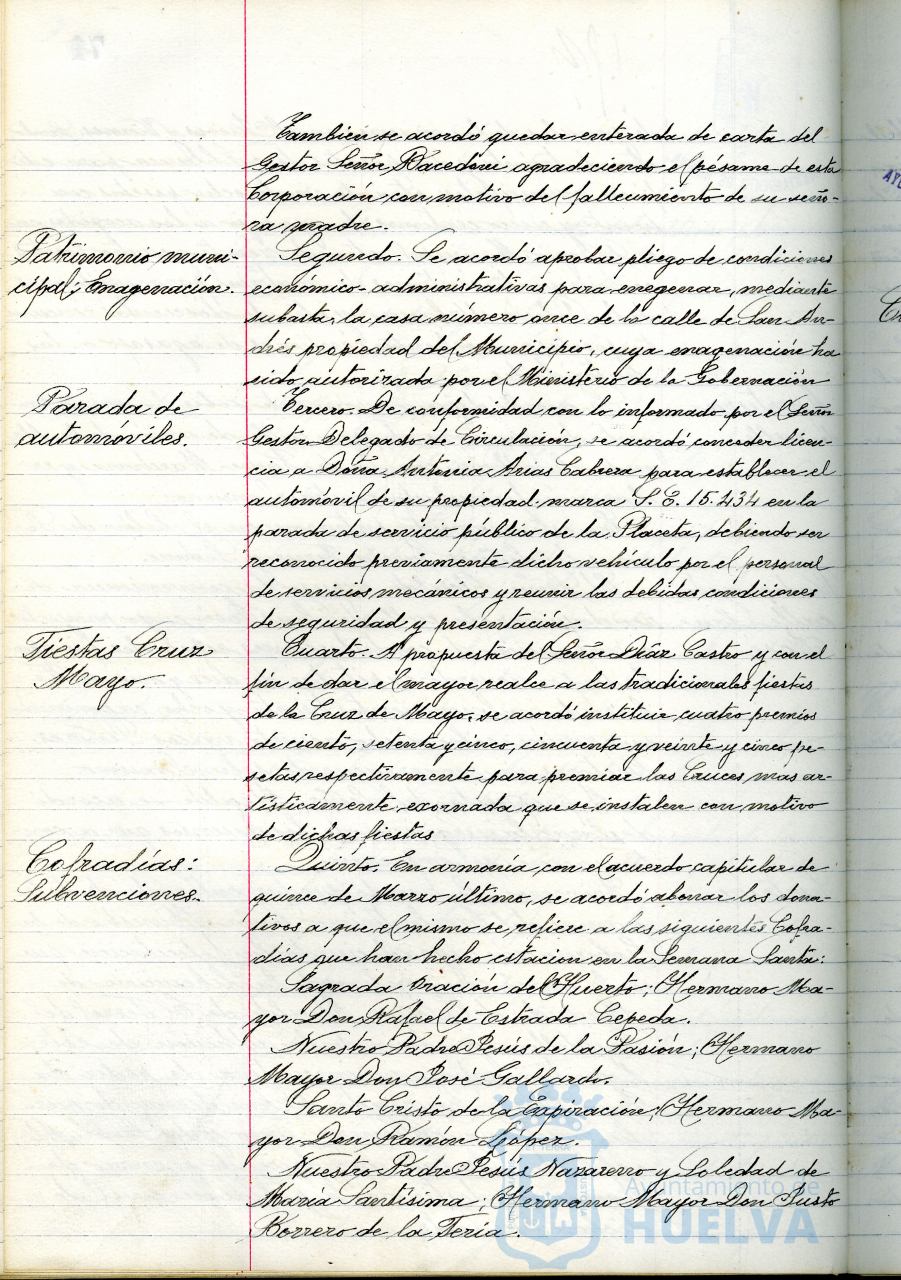 También se acordó quedar enterada de carta del
Gestor Señor Macedoni agradeciendo el pésame de esta
Corporación con motivo del fallecimiento de su seño-
ra madre.
Patrimonio muni-
cipal: Enagenación.
Segundo. Se acordó aprobar pliego de condiciones
económico-administrativas para enegenar, mediante
subasta, la casa número once de la calle de San An-
drés propiedad del Municipio, cuya enagenación ha
sido autorizada por el Ministerio de la Gobernación
Parada de
automóviles.
Tercero. De conformidad con lo informado por el Señor
Gestor Delegado de Circulación, se acordó conceder licen-
cia a Doña Antonia Arias Cabrera para establecer el
automóvil de su propiedad marca S. E. 15.234 en la
parada de servicio público de la Placeta, debiendo ser
reconocido previamente dicho vehículo por el personal
de servicios mecánicos y reunir las debidas condiciones
de seguridad y presentación.
Fiestas Cruz
Mayo.
Cuarto. A propuesta del Señor Díaz Castro y con el
fin de dar el mayor realce a las tradicionales fiestas
de la Cruz de Mayo, se acordó instituir cuatro premios
de ciento, setenta y cinco, cincuenta y veinte y cinco pe-
setas respectivamente para premiar las Cruces mas ar-
tísticamente exornada que se instalen con motivo
de dichas fiestas
Cofradías:
Subvenciones.
Quinto. En armonía con el acuerdo capitular de
quince de Marzo último, se acordó abonar los dona-
tivos a que el mismo se refiere a las siguientes Cofra-
días que han hecho estacion en la Semana Santa:
Sagrada Oración del Huerto; Hermano Ma-
yor Don Rafael de Estrada Cepeda.
Nuestro Padre Jesús de la Pasión; Hermano
Mayor Don José Gallardo.
Santo Cristo de la Expiración; Hermano Ma-
yor Don Ramón López.
Nuestro Padre Jesús Nazareno y Soledad de
María Santísima; Hermano Mayor Don Justo
Borrero de la Feria.
Ayuntamiento de
HUELVA